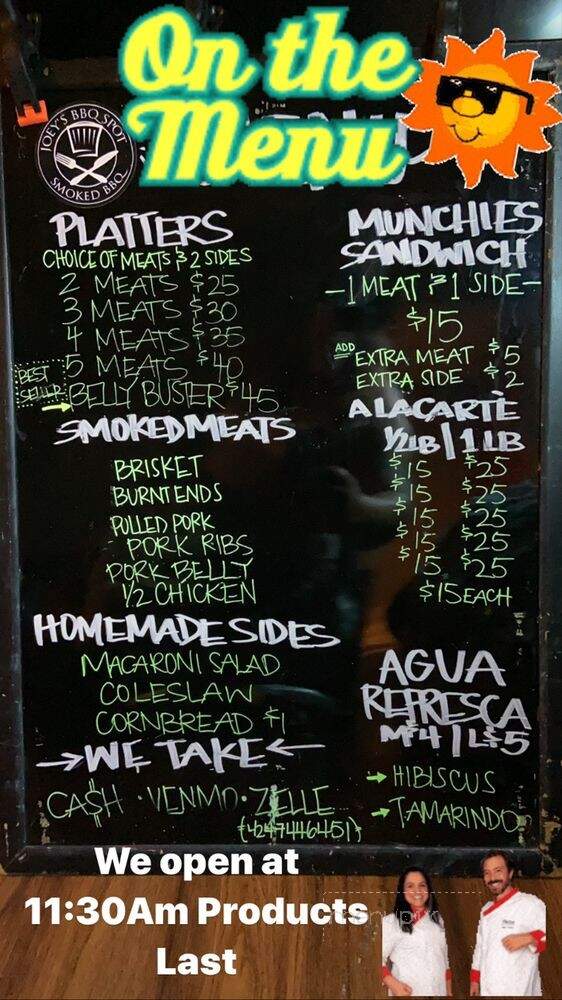 On the
Menu
JOEY'S BBQ SPOT
SMOKED BBQ
PLATTERS
CHOICE OF MEATS & 2 SIDES
2 MEATS $25
3 MEATS $30
4 MEATS $35
5 MEATS $40
BEST
SELLER
BELLY BUSTER $45
SMOKED MEATS
BRISKET
BURNT ENDS
PULLED PORK
PORK RIBS
PORK BELLY
1/2 CHICKEN
HOMEMADE SIDES
MACARONI SALAD
COLESLAW
CORNBREAD $1
→WE TAKE←
CA$H · VENMO · ZELLE
(4247446451)
MUNCHIES
SANDWICH
-1 MEAT & 1 SIDE-
$15
ADD
EXTRA MEAT $5
EXTRA SIDE $2
A LA CARTÈ
1/2 LB | 1 LB
$15 $25
$15 $25
$15 $25
$15 $25
$15 $25
$15 EACH
AGUA
REFRESCA
M$4 | L$5
→ HIBISCUS
→ TAMARINDO
We open at
11:30Am Products
Last